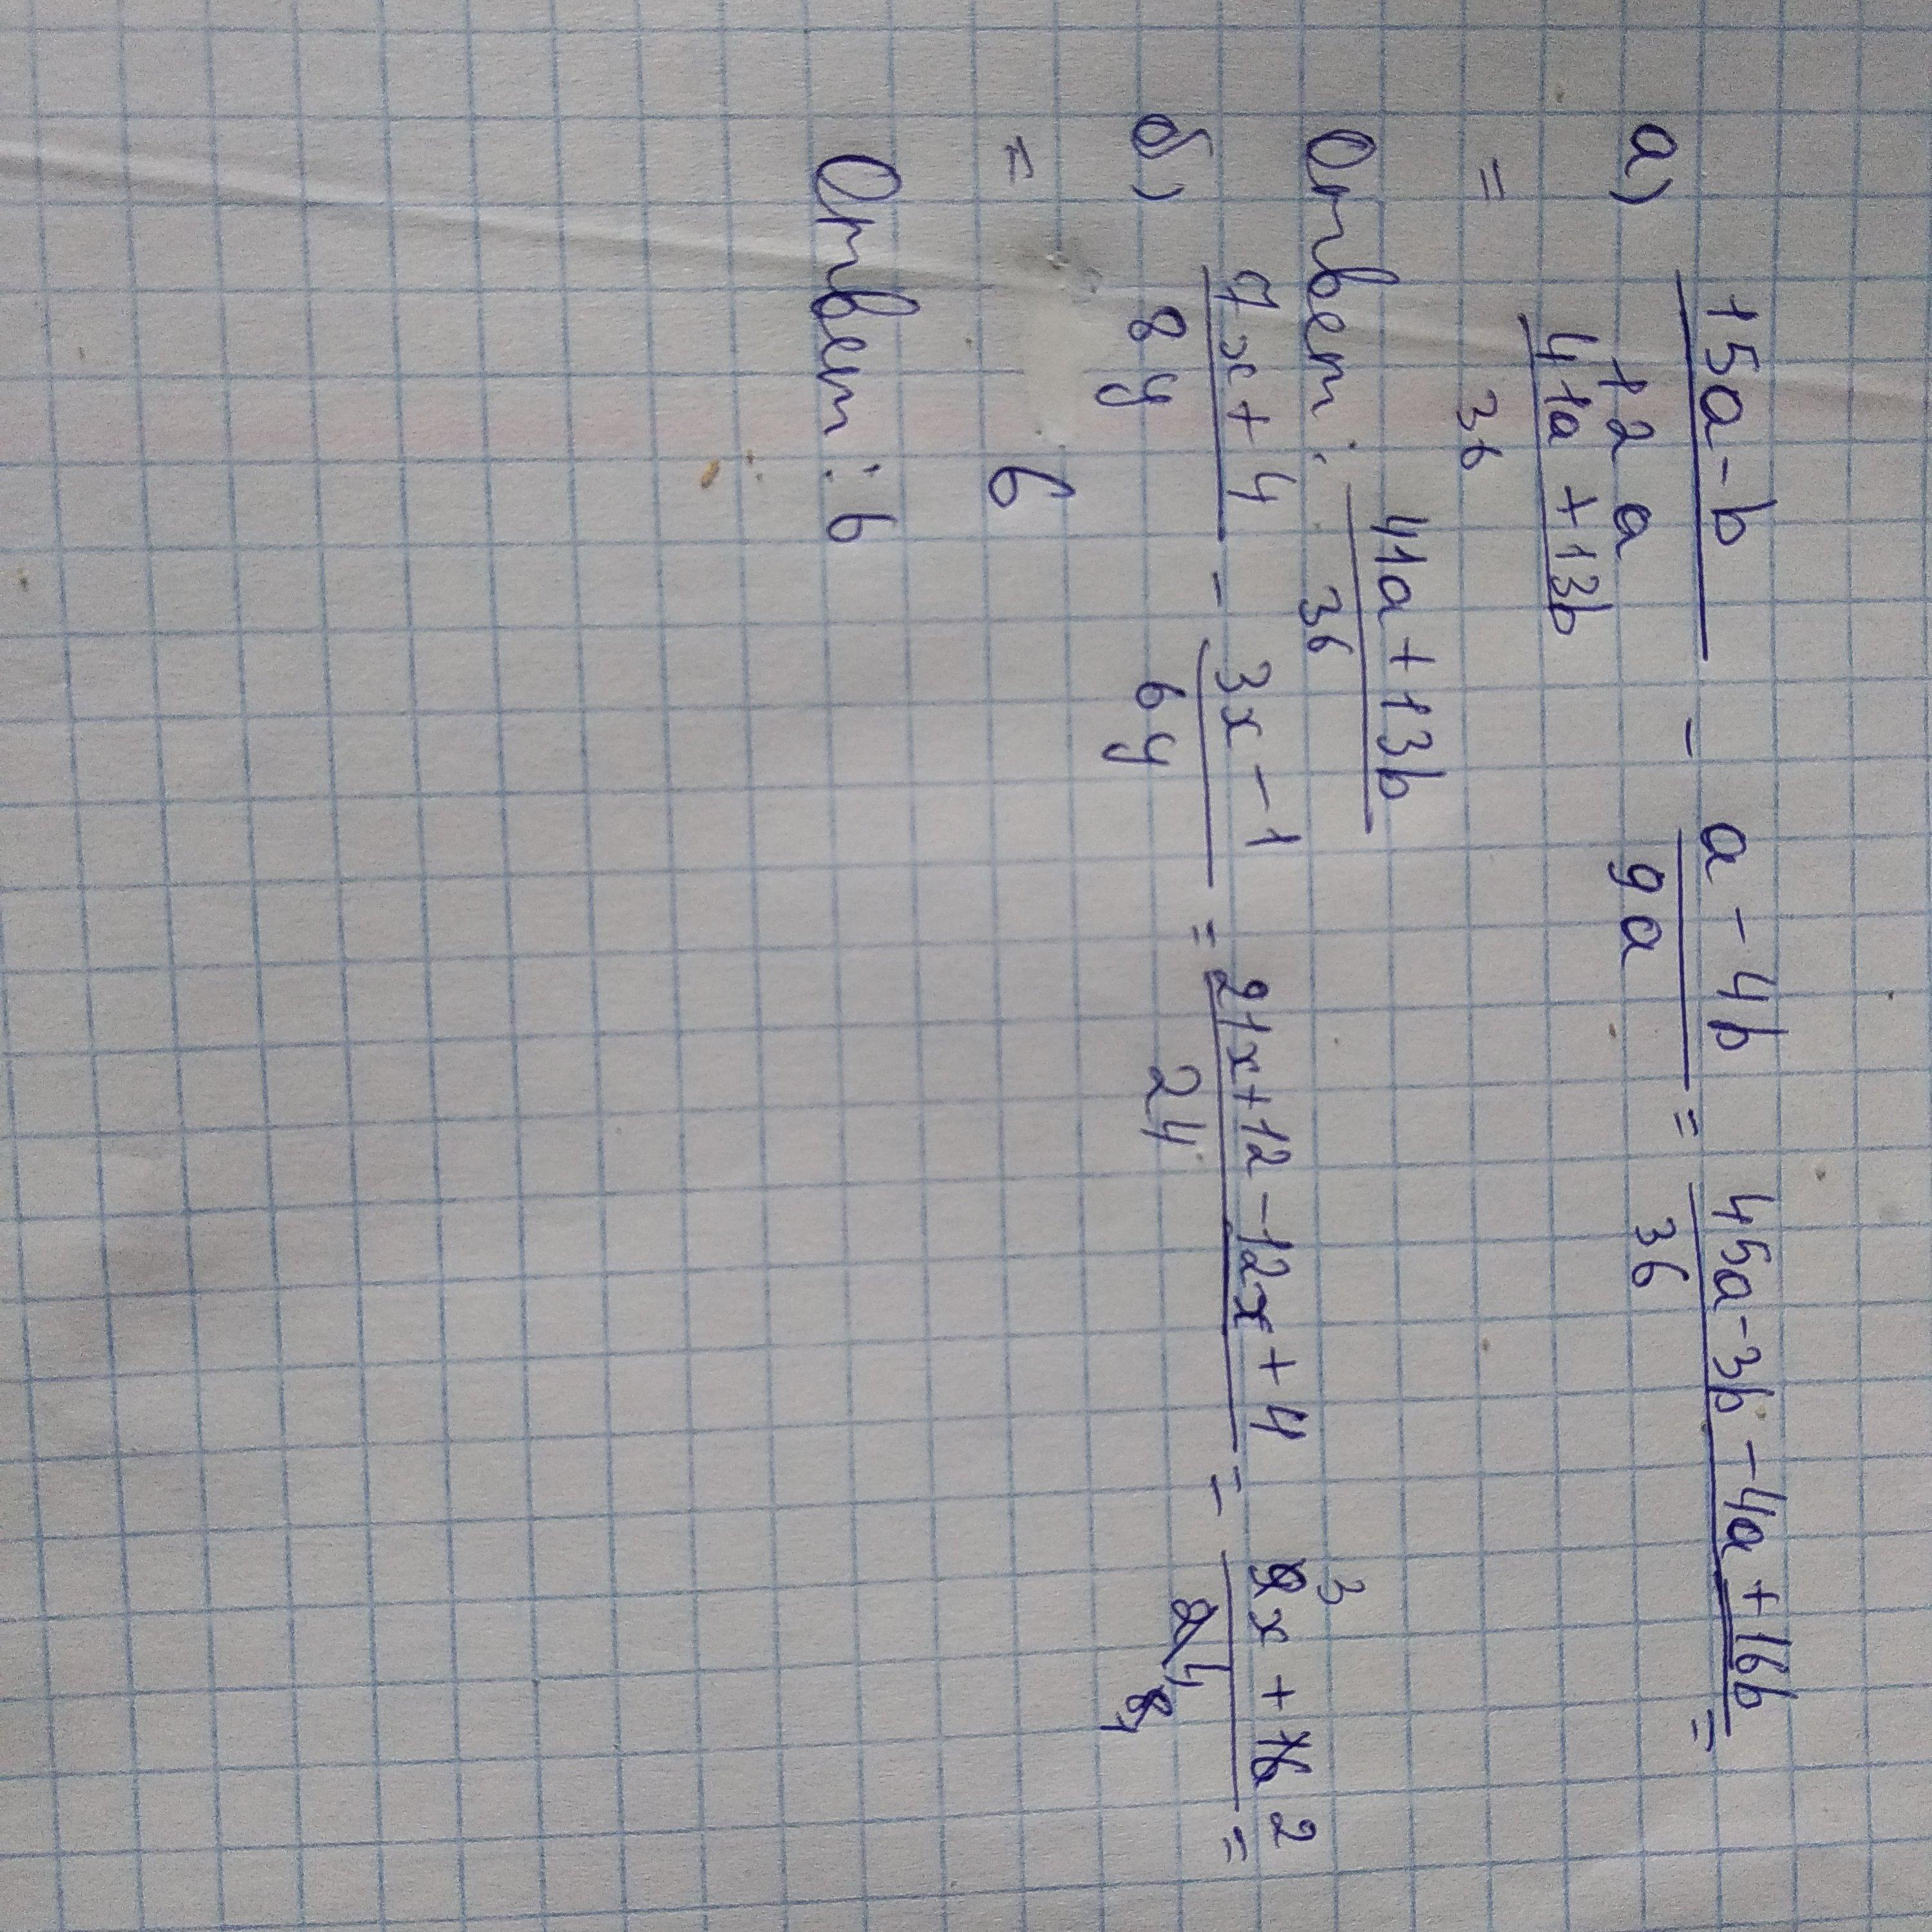 а) (15a-b)/(12a) - (a-4b)/(9a) = (45a-3b-4a+16b)/36 =
= (41a+13b)/36
Ответ: (41a+13b)/36
б) (7x+4)/(8y) - (3x-1)/(6y) = (21x+12-12x+4)/24 = (9x 3 + 16 2)/(24 8) =
= 6
Ответ: 6